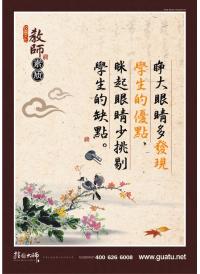 教師
素质
睁大眼睛多發現
學生的優點，
眯起眼睛少挑剔
學生的缺點。
400 626 6008
www.guatu.net